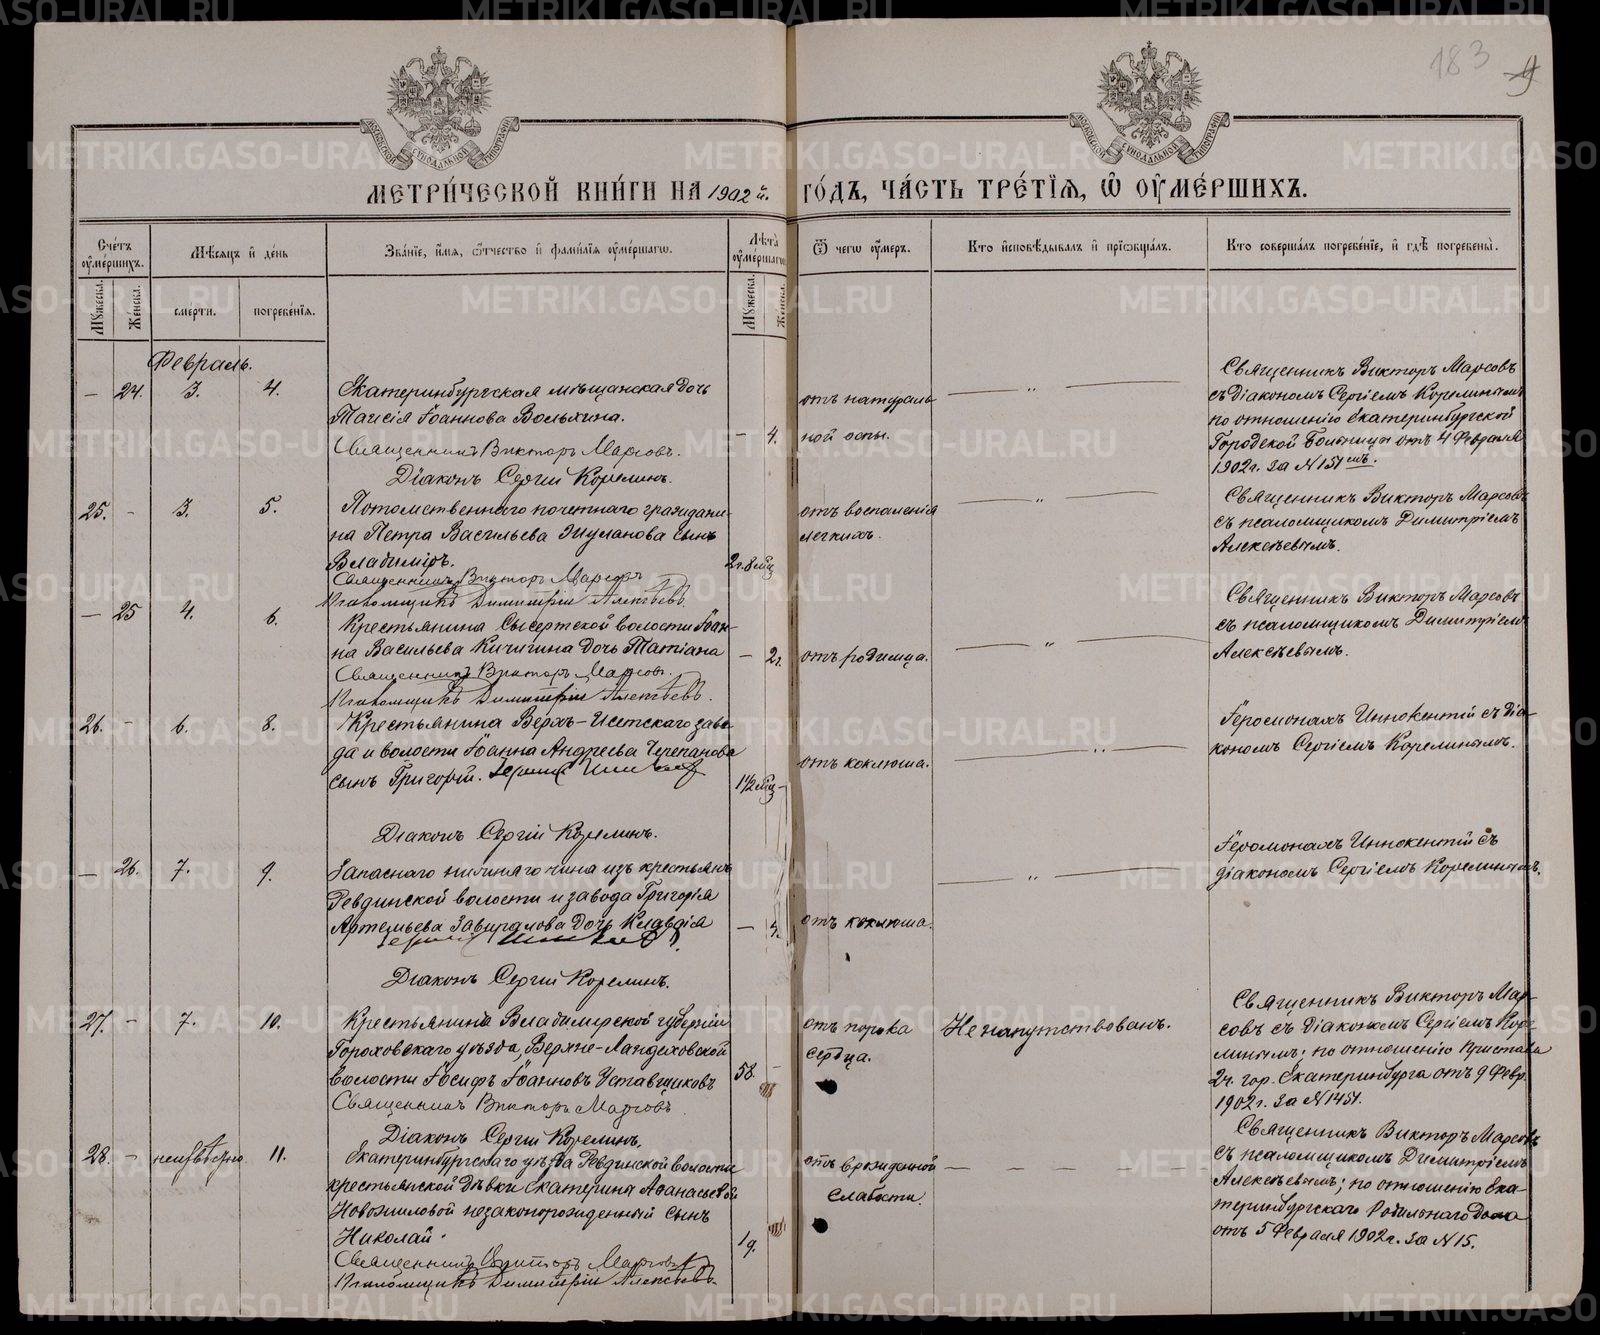 183
МОСКОВСКОЙ СѴНОДАЛЬНОЙ ТИПОГРАФІИ
МОСКОВСКОЙ СѴНОДАЛЬНОЙ ТИПОГРАФІИ
МЕТРИ́ЧЕСКОЙ КНИ́ГИ НА 1902й. ГО́ДЪ, ЧА́СТЬ ТРЕ́ТІѦ, Ѽ ОУ҆МЕ́РШИХЪ.
Сче́тъ оу҆ме́ршихъ.
Мѣ́сѧцъ и҆ де́нь
Зва́нїе, и҆́мѧ, ѻ҆́тчество и҆ фами́лїѧ оу҆ме́ршагѡ.
Лѣ́та оу҆ме́ршагѡ
Ѿ чегѡ̀ оу҆́меръ.
Кто̀ и҆сповѣ́дывалъ и҆ прїѡбща́лъ.
Кто̀ соверша́лъ погребе́нїе, и҆ гдѣ̀ погребены̀.
Мꙋжескъ.
Женскъ.
сме́рти.
погребе́нїѧ.
Мꙋжескъ.
Женскъ.
Февраль.
— 24. 3. 4.
Екатеринбургская мѣщанская дочь
Таисія Іоаннова Вольхина.
Священникъ Викторъ Марсовъ.
Діаконъ Сергій Корелинъ.
— 4.
отъ натураль
ной оспы.
— " —
Священникъ Викторъ Марсовъ
съ діакономъ Сергіемъ Корелинымъ
по отношенію Екатеринбургской
Городской Больницы отъ 4 Февраля
1902г. за N151мъ.
25. - 3. 5.
Потомственнаго почетнаго граждани-
на Петра Васильева сынъ
Владиміръ.
Священникъ Викторъ Марсовъ
Псаломщикъ Димитрій Алексѣевъ.
2г. 8мц
отъ воспаленія
легкихъ.
— " —
Священникъ Викторъ Марсовъ
съ псаломщикомъ Димитріемъ
Алексѣевымъ.
— 25 4. 6.
Крестьянина Сысертской волости Іоан-
на Васильева Кичигина дочь Татіана
Священникъ Викторъ Марсовъ.
Псаломщикъ Димитрій Алексѣевъ.
— 2г.
отъ родимца.
— " —
Священникъ Викторъ Марсовъ
съ псаломщикомъ Димитріемъ
Алексѣевымъ.
26. - 6. 8.
Крестьянина Верхъ-Исетскаго заво-
да и волости Іоанна Андреева Черепанова
сынъ Григорій.
Діаконъ Сергій Корелинъ.
1½мц -
отъ коклюша.
— " —
Іеромонахъ Иннокентій съ діа-
кономъ Сергіемъ Корелинымъ.
— 26. 7. 9.
Запаснаго нижняго чина изъ крестьянъ
Ревдинской волости и завода Григорія
Артемьева Завиралова дочь Клавдія
Діаконъ Сергій Корелинъ.
— 4.
отъ коклюша.
— " —
Іеромонахъ Иннокентій съ
діакономъ Сергіемъ Корелинымъ.
27. - 7. 10.
Крестьянинъ Владимірской губерніи
Гороховскаго уѣзда, Верхне-Ландеховской
волости Іосифъ Іоанновъ Уставщиковъ
Священникъ Викторъ Марсовъ.
Діаконъ Сергій Корелинъ.
58. -
отъ порока
сердца.
Не напутствованъ.
Священникъ Викторъ Мар-
совъ съ діакономъ Сергіемъ Коре-
линымъ; по отношенію Пристава
2ч. гор. Екатеринбурга отъ 9 Февр.
1902г. за N1451.
28. - неизвѣстно 11.
Екатеринбургскаго уѣзда Ревдинской волости
крестьянской дѣвки Екатерины Аѳанасьевой
Новожиловой незаконорожденный сынъ
Николай.
Священникъ Викторъ Марсовъ
Псаломщикъ Димитрій Алексѣевъ.
1д.
отъ врожденной
слабости.
— — — —
Священникъ Викторъ Марсовъ
съ псаломщикомъ Димитріемъ
Алексѣевымъ; по отношенію Ека-
теринбургскаго Родильнаго Дома
отъ 5 Февраля 1902г. за N15.
METRIKI.GASO-URAL.RU